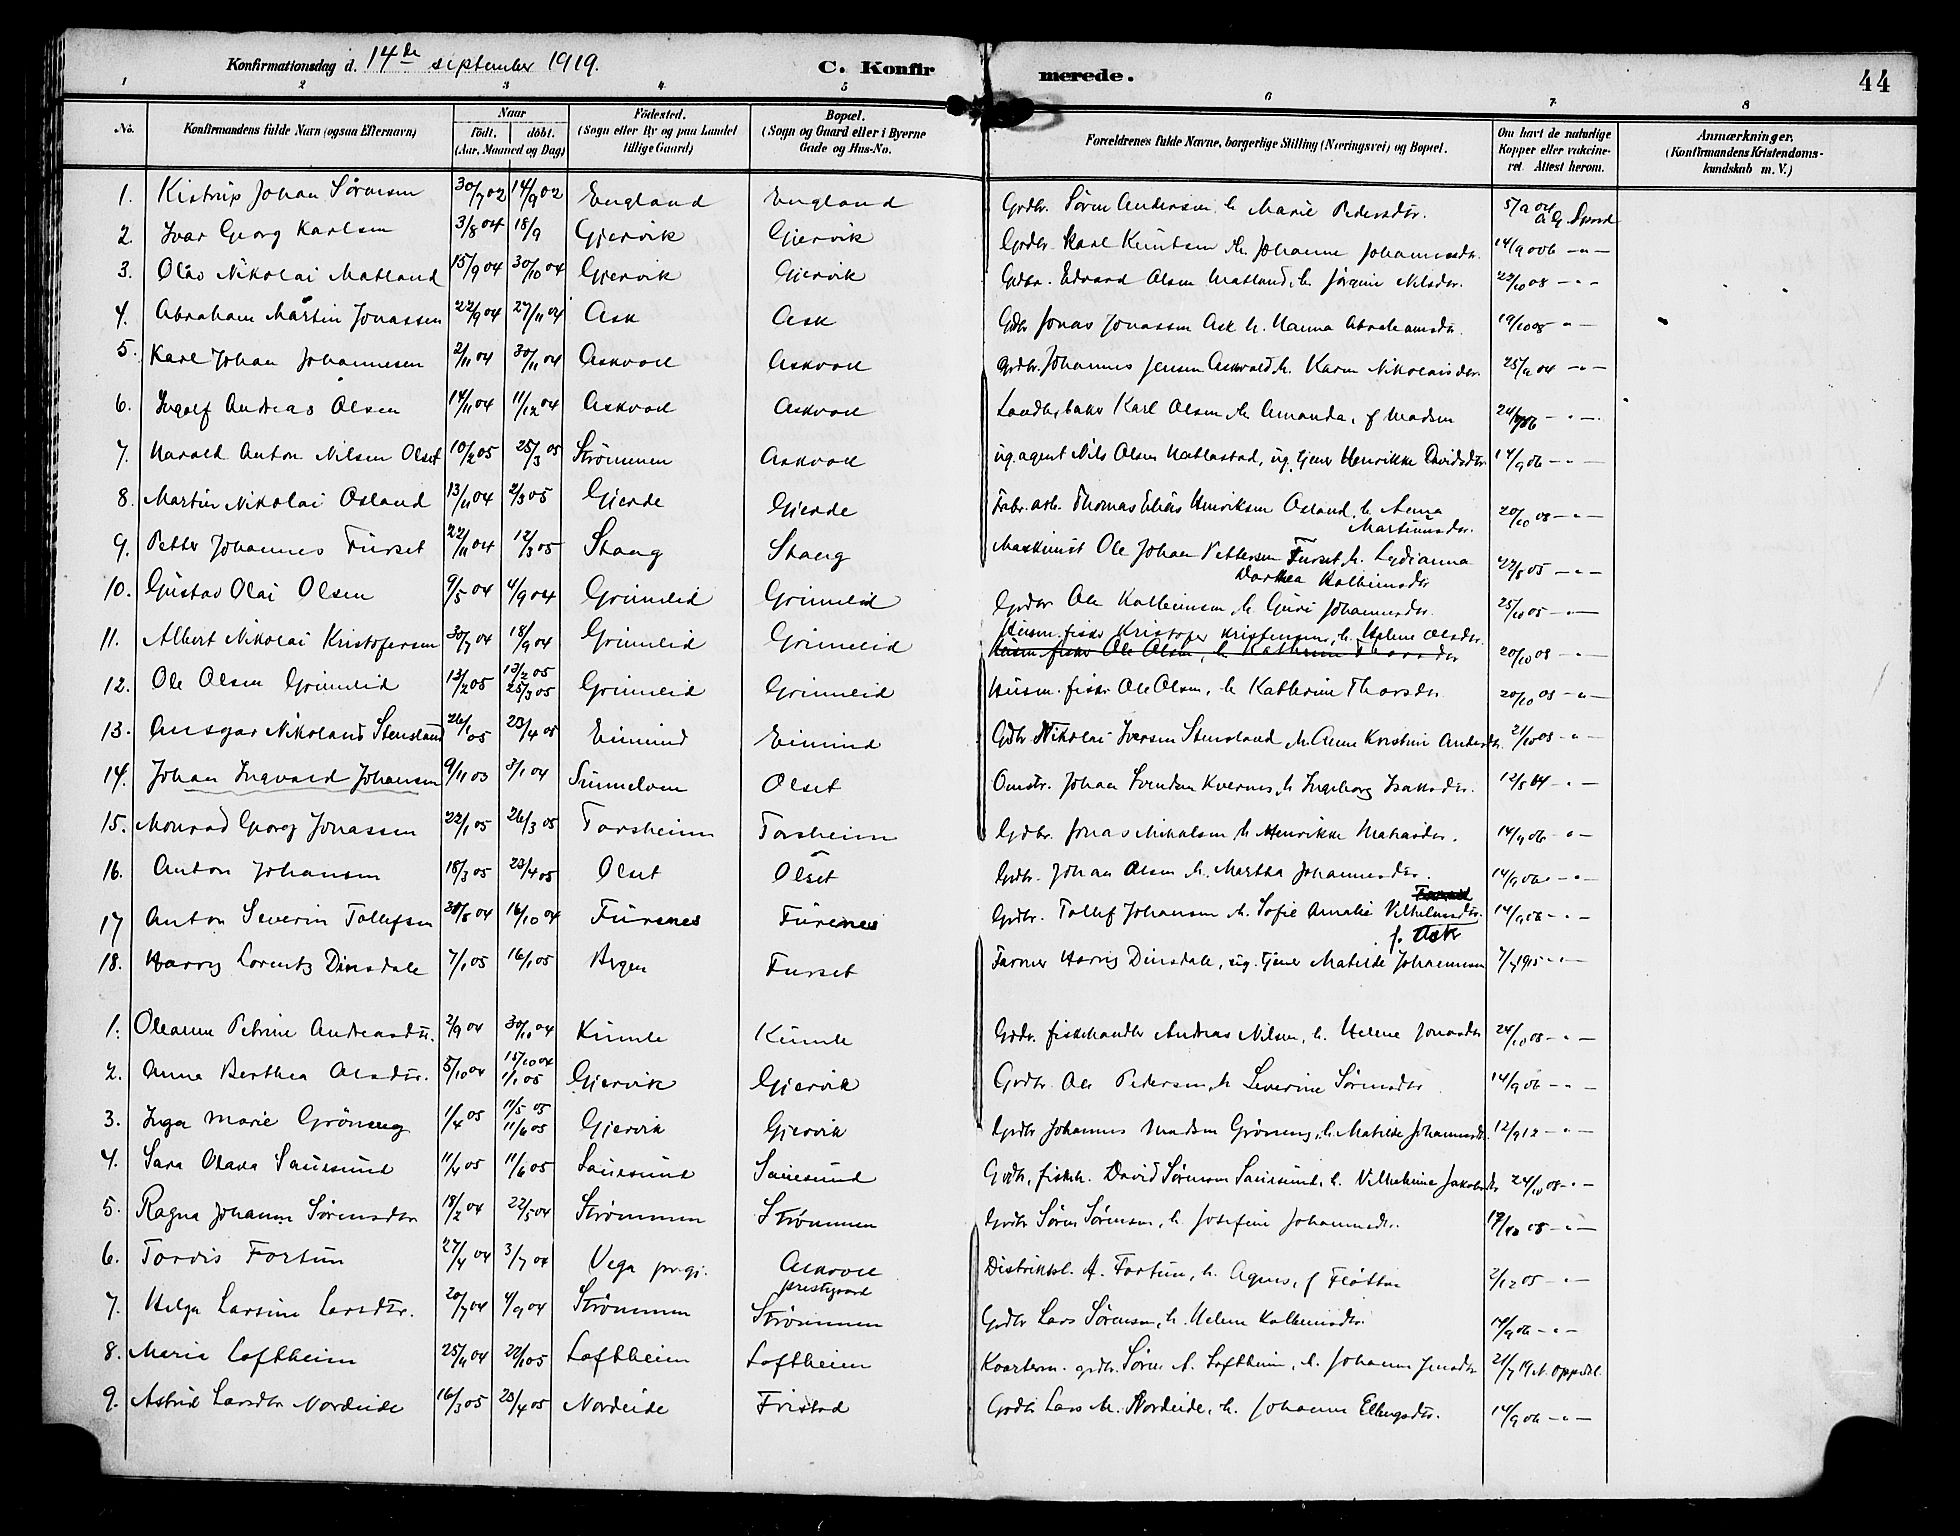 Konfirmationsdag d. 14de september 1919. C. Konfirmerede. 44
1 2 3 4 5 6 7 8
No. Konfirmandens fulde Navn (ogsaa Efternavn) Naar født. døbt. (Aar, Maaned og Dag) Fødested. (Sogn eller By og paa Landet tillige Gaard) Bopæl. (Sogn og Gaard eller i Byerne Gade og Hus-No. Forældrenes fulde Navne, borgerlige Stilling (Næringsvei) og Bopæl. Om havt de naturlige Kopper eller vakcineret. Attest herom. Anmærkninger. (Konfirmandens Kristendomskundskab m. V.)
1. Kistrup Johan Sørensen 30/7 02 14/9 02 England England Grdbr. Søren Andersen, h. Marie Pedersdtr.
2. Ivar Georg Karlsen 3/8 04 18/9 Gjervik Gjervik Grdbr. Karl Knutsen, h. Johanne Johannesdtr. 14/9 06 - " -
3. Olav Nikolai Matland 15/9 04 30/10 04 Gjervik Gjervik Gdbr. Edvard Olsen Matland, h. Jørgine Nilsdtr. 22/10 08 - " -
4. Abraham Martin Jonassen 22/9 04 27/11 04 Ask Ask Gdbr Jonas Jonassen Ask h. Hanna Abrahamsdtr. 19/10 08 - " -
5. Karl Johan Johannesen 2/11 04 30/11 04 Askvoll Askvoll Grdbr. Johannes Jensen Askvold, h. Karen Nikolaisdtr. 25/11 04 - " -
6. Ingolf Andreas Olsen 14/11 04 11/12 04 Askvoll Askvoll Landh., baker Karl Olsen, h. Amanda, f. Madsen - " -
7. Harald Anton Nilsen Olset 10/2 05 25/3 05 Strømmen Askvoll ug. agent Nils Olsen Hatlestad, ug. tjener Henrikke Davidsdtr 14/9 06 - " -
8. Martin Nikolai Osland 13/11 04 2/3 05 Gjerde Gjerde Fabr. arb. Thomas Elias Henriksen Osland, h. Anna Martinusdtr. 20/10 08 - " -
9. Petter Johannes Furset 22/11 04 12/3 05 Stang Stang Maskinist Ole Johan Pettersen Furset, h. Lydianna Dorthea Kolbeinsdtr 22/8 05 - " -
10. Gustav Olai Olsen 9/5 04 4/9 04 Grimelid Grimelid Grdbr Ole Kolbeinsen, h. Guri Johannesdtr. 25/10 05 - " -
11. Albert Nikolai Kristofersen 30/7 04 18/9 04 Grimelid Grimelid Husm. fisker Kristofer Kristensen, h. Helene Olsdtr.
Husm. fisker Ole Olsen, h. Kathrine Thorsdtr 20/10 08 - " -
12. Ole Olsen Grimelid 13/2 05 13/2 05 25/3 05 Grimelid Grimelid Husm. fisker Ole Olsen, h. Kathrine Thorsdtr. 20/10 08 - " -
13. Ansgar Nikolaus Stensland 26/1 05 23/4 05 Eimind Eimind Gdbr Nikolai Iversen Stensland, h. Anne Kristine Andersdtr. 21/10 08 - " -
14. Johan Ingvald Johansen 9/11 03 3/1 04 Sunnelven Olset Omstr. Johan Svendsen Kvernes, h. Ingeborg Isaksdtr. 12/8 14 - " -
15. Monrad Georg Jonassen 22/1 05 26/3 05 Torsheim Torsheim Gdbr. Jonas Mikalsen, h. Henrikke Matiasdtr. 14/9 06 - " -
16. Anton Johansen 18/3 05 23/4 05 Olset Olset Grdbr. Johan Olsen h. Martha Johannesdtr. 14/9 06 - " -
17 Anton Severin Tollefsen 28/8 04 16/10 04 Furenes Furenes Grdbr. Tollef Johansen h. Sofie Amalie Vilhelmsdtr. f. Ask 14/9 06 - " -
18. Harry Lorentz Dinsdale 7/1 05 16/1 05 Bergen Furset Farmer Harry Dinsdale, ug. tjener Matilde Johannesen 7/7 1915 - " -
1. Oleanne Petrine Andreasdtr. 2/9 04 30/10 04 Kumle Kumle Grdbr. fiskehandler Andreas Nilsen, h. Helene Jonasdtr 24/10 08 - " -
2. Anne Berthea Olsdtr. 5/10 04 15/10 04 1/1 05 Gjervik Gjervik Grdbr. Ole Pedersen, h. Severine Sørensdtr 14/9 06 - " -
3. Inga Marie Grøneng 1/4 05 11/5 05 11/6 05 Gjervik Gjervik Grdbr Johannes Madsen Grøneng, h. Matilde Johannesdtr. 12/9 12 - " -
4. Sara Olava Sauesund 11/4 05 11/6 05 Sauesund Sauesund Grdbr., fiskeh. David Sørensen Sauesund, h. Vilhelmine Jakobsdtr 24/10 08 - " -
5. Ragna Johanne Sørensdtr 18/2 04 22/5 04 Strømmen Strømmen Grdbr Søren Sørensen, h. Josefine Johannesdtr. 19/10 08 - " -
6. Tordis Fortun 27/4 04 3/7 04 Vega pr.gj. Askvoll prestegaard Distriktsl. A. Fortun, h. Agnes, f. Fløttum 2/12 05 - " -
7. Helga Larsine Larsdtr. 20/7 04 4/9 04 Strømmen Strømmen Grdbr Lars Sørensen, h. Helene Kolbeinsdtr. 14/9 06 - " -
8. Maria Loftheim 25/11 04 22/1 05 Loftheim Loftheim Kvarterm. grdbr. Søren A. Loftheim, h. Johanne Jensdtr 21/7 19 N. Oppedal.
9. Astrid Larsdtr Nordeide 16/3 05 23/4 05 Nordeide Fristad Grdbr Lars M. Nordeide, h. Johanne Ellingsdtr. 14/9 06 - " -